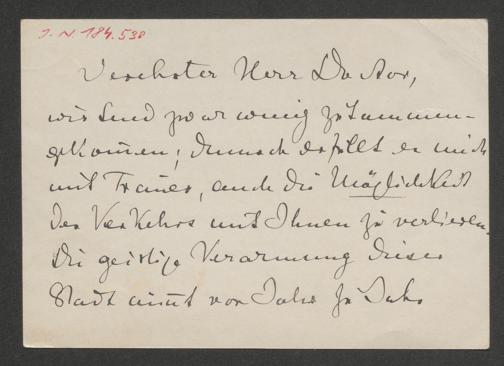 J. N. 184.538
Verehrter Herr Doctor,
wir sind zwar wenig zusammen-
gekom̅en; dennoch erfüllt es mich
mit Trauer, auch die Möglichkeit
des Verkehrs mit Ihnen zu verlieren.
Die geistige Verarmung dieser
Stadt nim̅t von Jahr zu Jahr